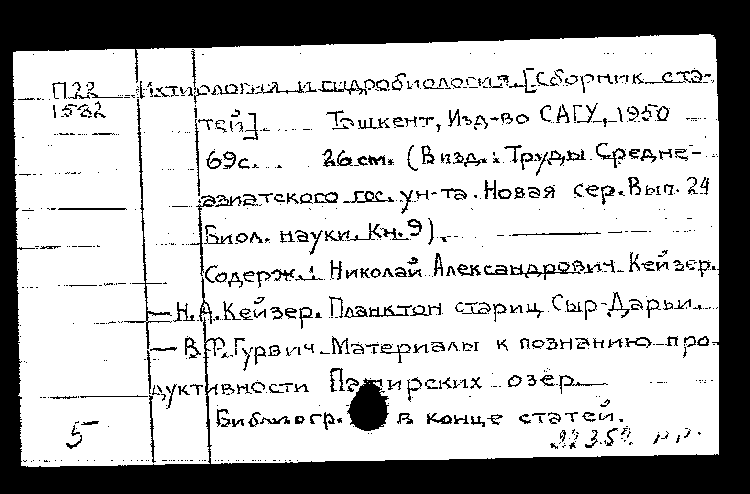 П22 Ихтиология и гидробиология. [Сборник ста-
1582 тей]. Ташкент, Изд-во САГУ, 1950
69с. 26см. (В изд.: Труды Средне-
азиатского гос. ун-та. Новая сер. Вып. 24
Биол. науки. Кн. 9).
Содерж.: Николай Александрович Кейзер.
— Н.А. Кейзер. Планктон стариц Сыр-Дарьи.
— В.Ф. Гурвич. Материалы к познанию про-
дуктивности Памирских озер.
Библиогр. в конце статей.
5 22352 р.р.